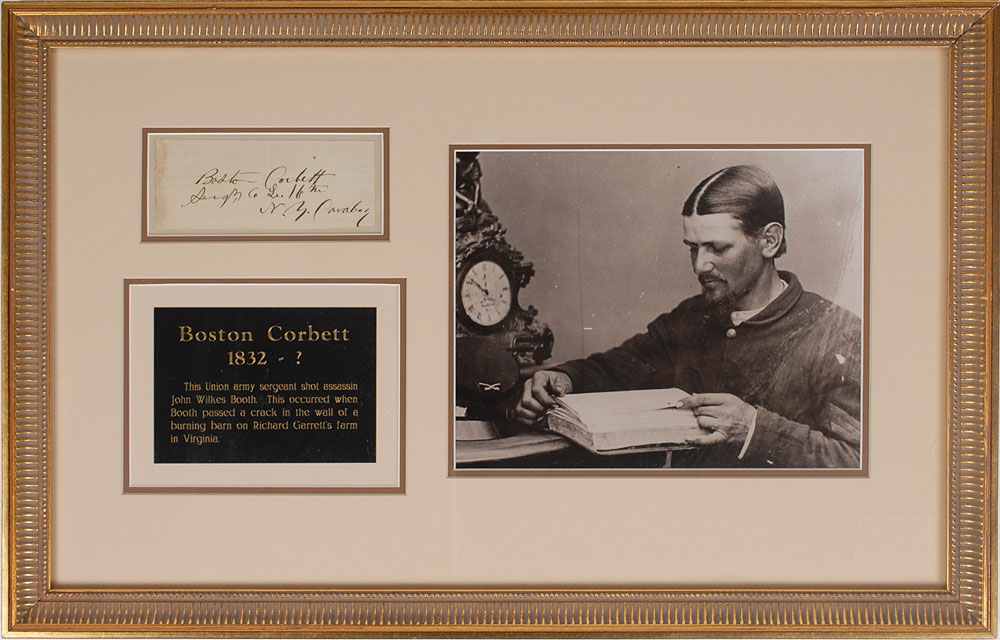 Boston Corbett
Sergt Co L. 16th
N. Y. Cavalry
Boston Corbett
1832 - ?
This Union army sergeant shot assassin
John Wilkes Booth. This occurred when
Booth passed a crack in the wall of a
burning barn on Richard Garrett's farm
in Virginia.